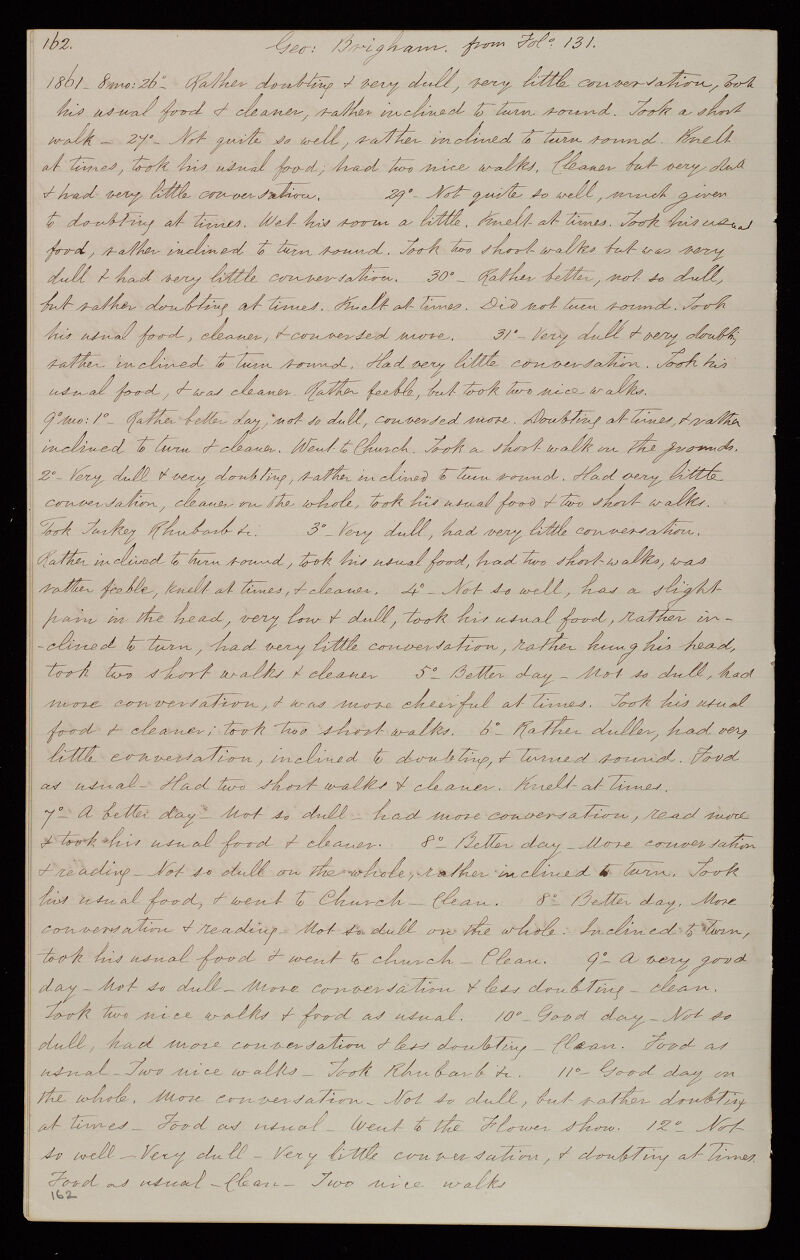 162. Geo: Brigham. from Fol.o 131.
1861 - 8 mo: 26o - Rather doubting & very dull, very little conversation, Took
his usual food & cleaner, rather inclined to turn round. Took a short
walk - 27o - Not quite so well, rather inclined to turn round. Knelt
at times, took his usual food; had two nice walks. Cleaner but very dull
& had very little conversation. 29o - Not quite so well, much given
to doubting at times. Wet his room a little. Knelt at times. Took his usual
food, rather inclined to turn round. Took two short walks but was very
dull & had very little conversation. 30o - Rather better, not so dull,
but rather doubting at times. Knelt at times. Did not turn round. Took
his usual food, cleaner, & conversed more. 31o - Very dull & very doubtg
rather inclined to turn round. Had very little conversation. Took his
usual food, & was cleaner. Rather feeble, but took two nice walks.
9o mo: 1o - Rather better day, not so dull, conversed more. Doubting at times, & rather
inclined to turn & cleaner. Went to Church. Took a short walk on the grounds.
2o - Very dull & very doubting, rather inclined to turn round. Had very little
conversation, cleaner on the whole, took his usual food & two short walks.
Took Turkey Rhubarb &c. 3o - Very dull, had very little conversation.
Rather inclined to turn round, took his usual food, had two short walks, was
rather feeble, knelt at times, & cleaner. 4o - Not so well, has a slight
pain in the head, very low & dull, took his usual food, rather in-
-clined to turn, had very little conversation, rather hung his head,
took two short walks & cleaner 5o - Better day - Not so dull, had
more conversation, & was more cheerful at times. Took his usual
food & cleaner; took two short walks. 6o - Rather duller, had very
little conversation, inclined to doubting, & turned round. Food
as usual - Had two short walks & cleaner. Knelt at times.
7o - A better day - Not so dull - had more conversation, read more
& took his usual food & cleaner. 8o - Better day - More conversation
& reading - Not so dull on the whole, rather inclined to turn. Took
his usual food, & went to Church - Clean. 8o Better day. More
conversation & reading - Not so dull on the whole. Inclined to turn,
took his usual food & went to church - Clean. 9o - A very good
day - Not so dull - More conversation & less doubting - clean.
Took two nice walks & food as usual. 10o - Good day - Not so
dull, had more conversation & less doubting - Clean. Food as
usual - Two nice walks - Took Rhubarb &c. 11o - Good day on
the whole. More conversation - Not so dull, but rather doubting
at times - Food as usual - Went to the Flower show. 12o - Not
so well - Very dull - Very little conversation, & doubting at times
Food as usual - Clean - Two nice walks
162